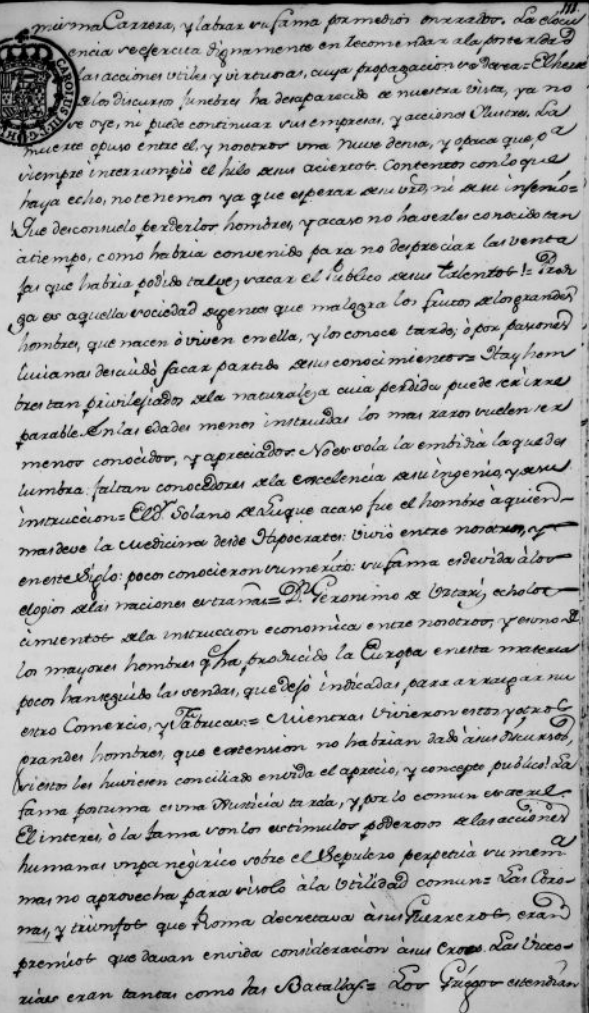 111.
misma Carrera, y labrar su fama por medios onrrados. La elocu
encia se esercita dignamente en recomendar a la posteridad
las acciones utiles y virtuosas, cuya propagacion se desea = El heroe
de los discursos funebres ha desaparecido de nuestra vista, ya no
se oye, ni puede continuar sus empresas, y acciones Ilustres. La
muerte opuso entre el, y nosotros una nuve densa, y opaca que pa
siempre interrumpió el hilo de sus aciertos. Contentos con lo que
haya echo, no tenemos ya que esperar de su ni de su infenio =
Que desconsuelo perder los hombres, y acaso no haverles conocido tan
atiempo, como habria convenido para no despreciar las venta
jas que habria podido talvez sacar el Publico de sus talentos! =
ga es aquella sociedad de gentes que malogra los frutos de los grandes
hombres, que nacen ò viven en ella, y los conoce tarde; ò por pasiones
livianas descuidò sacar partido de sus conocimientos = Hay hom
bres tan privilejiados de la naturaleza cuia perdida puede ser irre
parable. En las edades menos instruidas los mas raros suelen ser
menos conocidos, y apreciados. No es sola la embidia la que des
lumbra: faltan conocedores de la escelencia de su ingenio, y de su
instruccion = El Dr. Solano de Luque acaso fue el hombre à quien
mas deve la Medicina desde Hipocrates: vivió entre nosotros, y
en este Siglo: pocos conocieron su merito: su fama es devida à los
elogios de las naciones estrañas = Dn. Geronimo de Uztariz echo los
cimientos de la instruccion economica entre nosotros, y es uno de
los mayores hombres q. ha producido la Europa en esta materia
pocos han seguido las sendas, que dejó indicadas para arraigar nu
estro Comercio, y Fabricas: = Mientras vivieron estos y otros
grandes hombres, que estension no habrian dado à sus discursos,
si estos les huviesen conciliado en vida el aprecio, y concepto publico! La
fama postuma es una Justicia tarda, y por lo comun esteril.
El interes, ò la fama son los estimulos poderosos de las acciones
humanas un panegirico sobre el Sepulcro perpetúa su mem
mas no aprovecha para si solo à la Utilidad comun = Las Coro-
nas, y triunfos que Roma decretava à sus Guerreros, eran
premios que davan en vida consideración à sus Eroes. Las Vito-
rias eran tantas como las Batallas = Los Griegos estendian